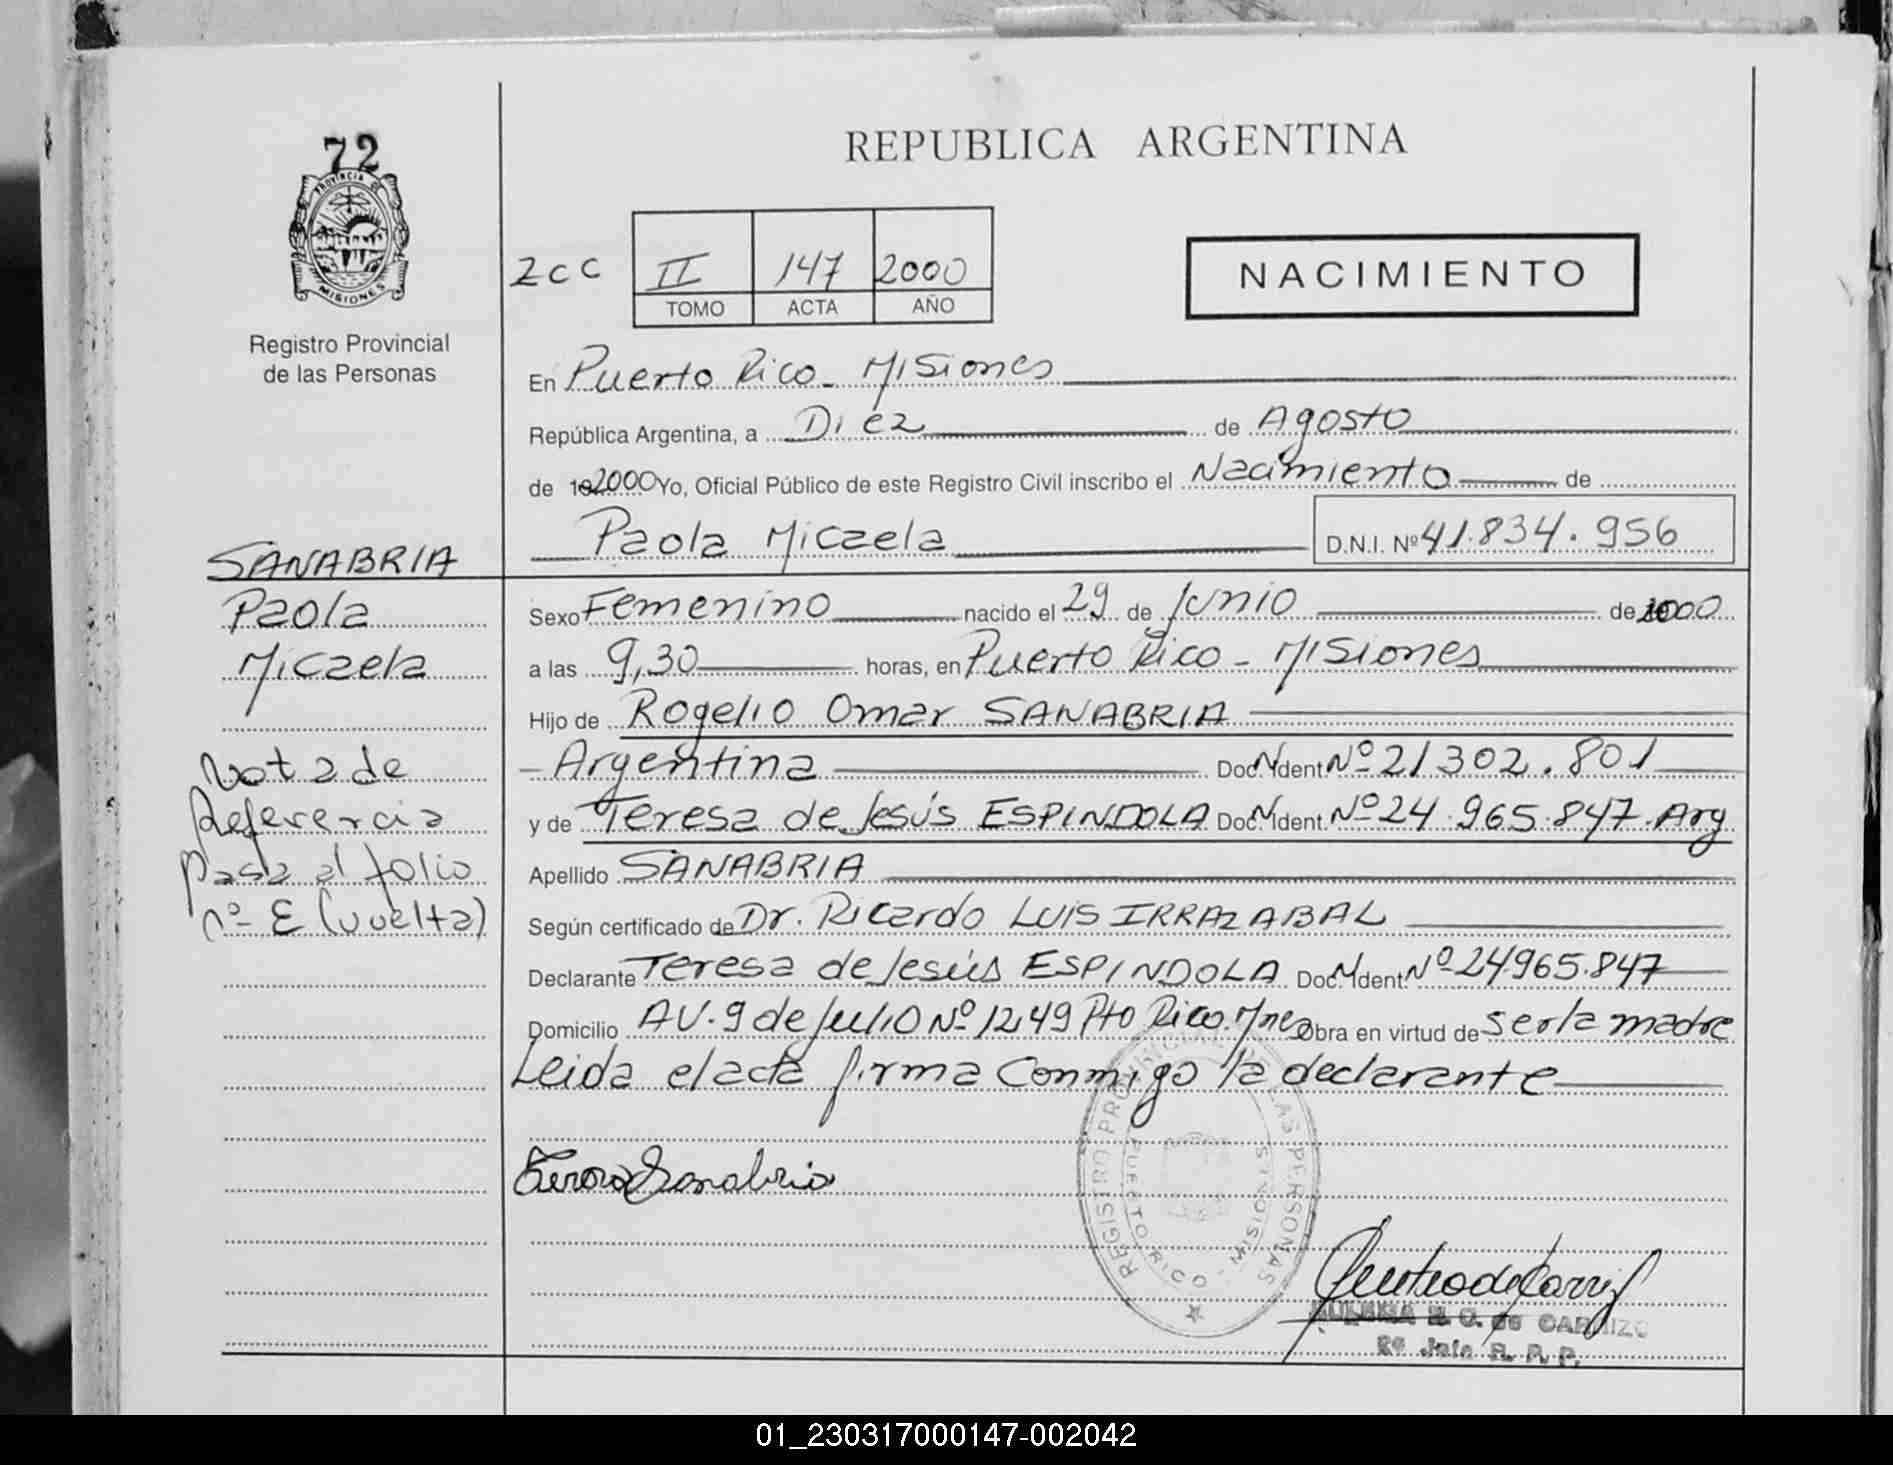 72
PROVINCIA DE
MISIONES
Registro Provincial
de las Personas
REPUBLICA ARGENTINA
2cc II 147 2000
TOMO ACTA AÑO
NACIMIENTO
En Puerto Rico - Misiones
República Argentina, a Diez de Agosto
de 192000 Yo, Oficial Público de este Registro Civil inscribo el Nacimiento de
Paola Micaela D.N.I. Nº 41.834.956
SANABRIA
Paola
Micaela
Nota de
Referencia
pasa al folio
nº E (vuelta)
Sexo Femenino nacido el 29 de Junio de 2000
a las 9,30 horas, en Puerto Rico - Misiones
Hijo de Rogelio Omar SANABRIA
- Argentina Doc. N Ident Nº 21302.801
y de Teresa de Jesús ESPINDOLA Doc. N Ident. Nº 24.965.847. Arg
Apellido SANABRIA
Según certificado de Dr. Ricardo LUIS IRRAZABAL
Declarante Teresa de Jesús ESPINDOLA Doc. N Ident. Nº 24965.847
Domicilio AV. 9 de Julio Nº 1249 Pto Rico. Mnes Obra en virtud de ser la madre
Leida el acta firma conmigo la declarante
Sanabria
REGISTRO PROVINCIAL DE LAS PERSONAS
PUERTO RICO - MISIONES
de CARRIZO
2º Jefe R. P. P.
01_230317000147-002042